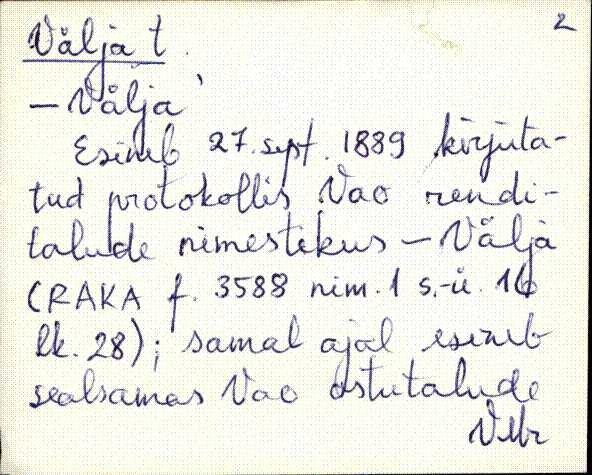 2
Välja t.
– Välja'
Esineb 27. sept. 1889 kirjuta-
tud protokollis Vao rendi-
talude nimestikus – Välja
(RAKA f. 3588 nim. 1 s.-ü. 16
lk. 28); samal ajal esineb
sealsamas Vao ostutalude